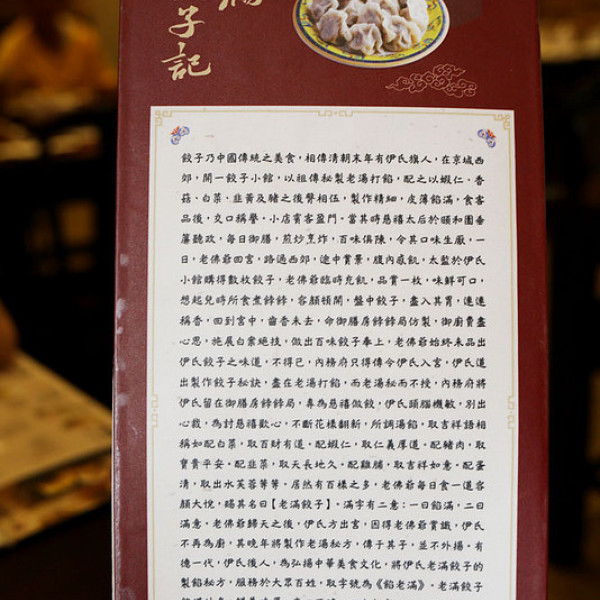 子記
餃子乃中國傳統之美食，相傳清朝末年有伊氏旗人，在京城西
郊，開一餃子小館，以祖傳秘製老湯打餡，配之以蝦仁、香
菇、白菜、韭黃及豬之後臀相伍，製作精細，皮薄餡滿，食客
品後，交口稱譽。小店賓客盈門。當其時慈禧太后於頤和園垂
簾聽政，每日御膳，煎炒烹炸，百味俱陳，令其口味生厭，一
日，老佛爺回宮，路過西郊，途中賞景，腹內感飢，太監於伊氏
小館購得數枚餃子，老佛爺臨時充飢，品嘗一枚，味鮮可口，
想起兒時所食煮餑餑，容顏頓開，盤中餃子，盡入其胃，連連
稱香，回到宮中，齒香未去，命御膳房餑餑局仿製，御廚費盡
心思，施展白案絕技，做出百味餃子奉上，老佛爺始終未品出
伊氏餃子之味道，不得已，內務府只得傳令伊氏入宮，伊氏道
出製作餃子秘訣，盡在老湯打餡，而老湯秘而不授，內務府將
伊氏留在御膳房餑餑局，專為慈禧做餃，伊氏頭腦機敏，別出
心裁，為討慈禧歡心，不斷花樣翻新，所調湯餡，取吉祥語相
稱如配白菜，取百財有道。配蝦仁，取仁義厚道。配豬肉，取
寶貴平安。配韭菜，取天長地久。配雞脯，取吉祥如意。配蛋
清，取出水芙蓉等等。居然有百樣之多，老佛爺每日食一道容
顏大悅，賜其名曰【老滿餃子】，滿字有二意：一曰餡滿，二曰
滿意。老佛爺歸天之後，伊氏方出宮，因得老佛爺賞識，伊氏
不再為廚，其晚年將製作老湯秘方，傳于其子，並不外揚。有
德一代，伊氏後人，為弘揚中華美食文化，將伊氏老滿餃子的
製餡秘方，服務於大眾百姓，取字號為《餡老滿》。老滿餃子